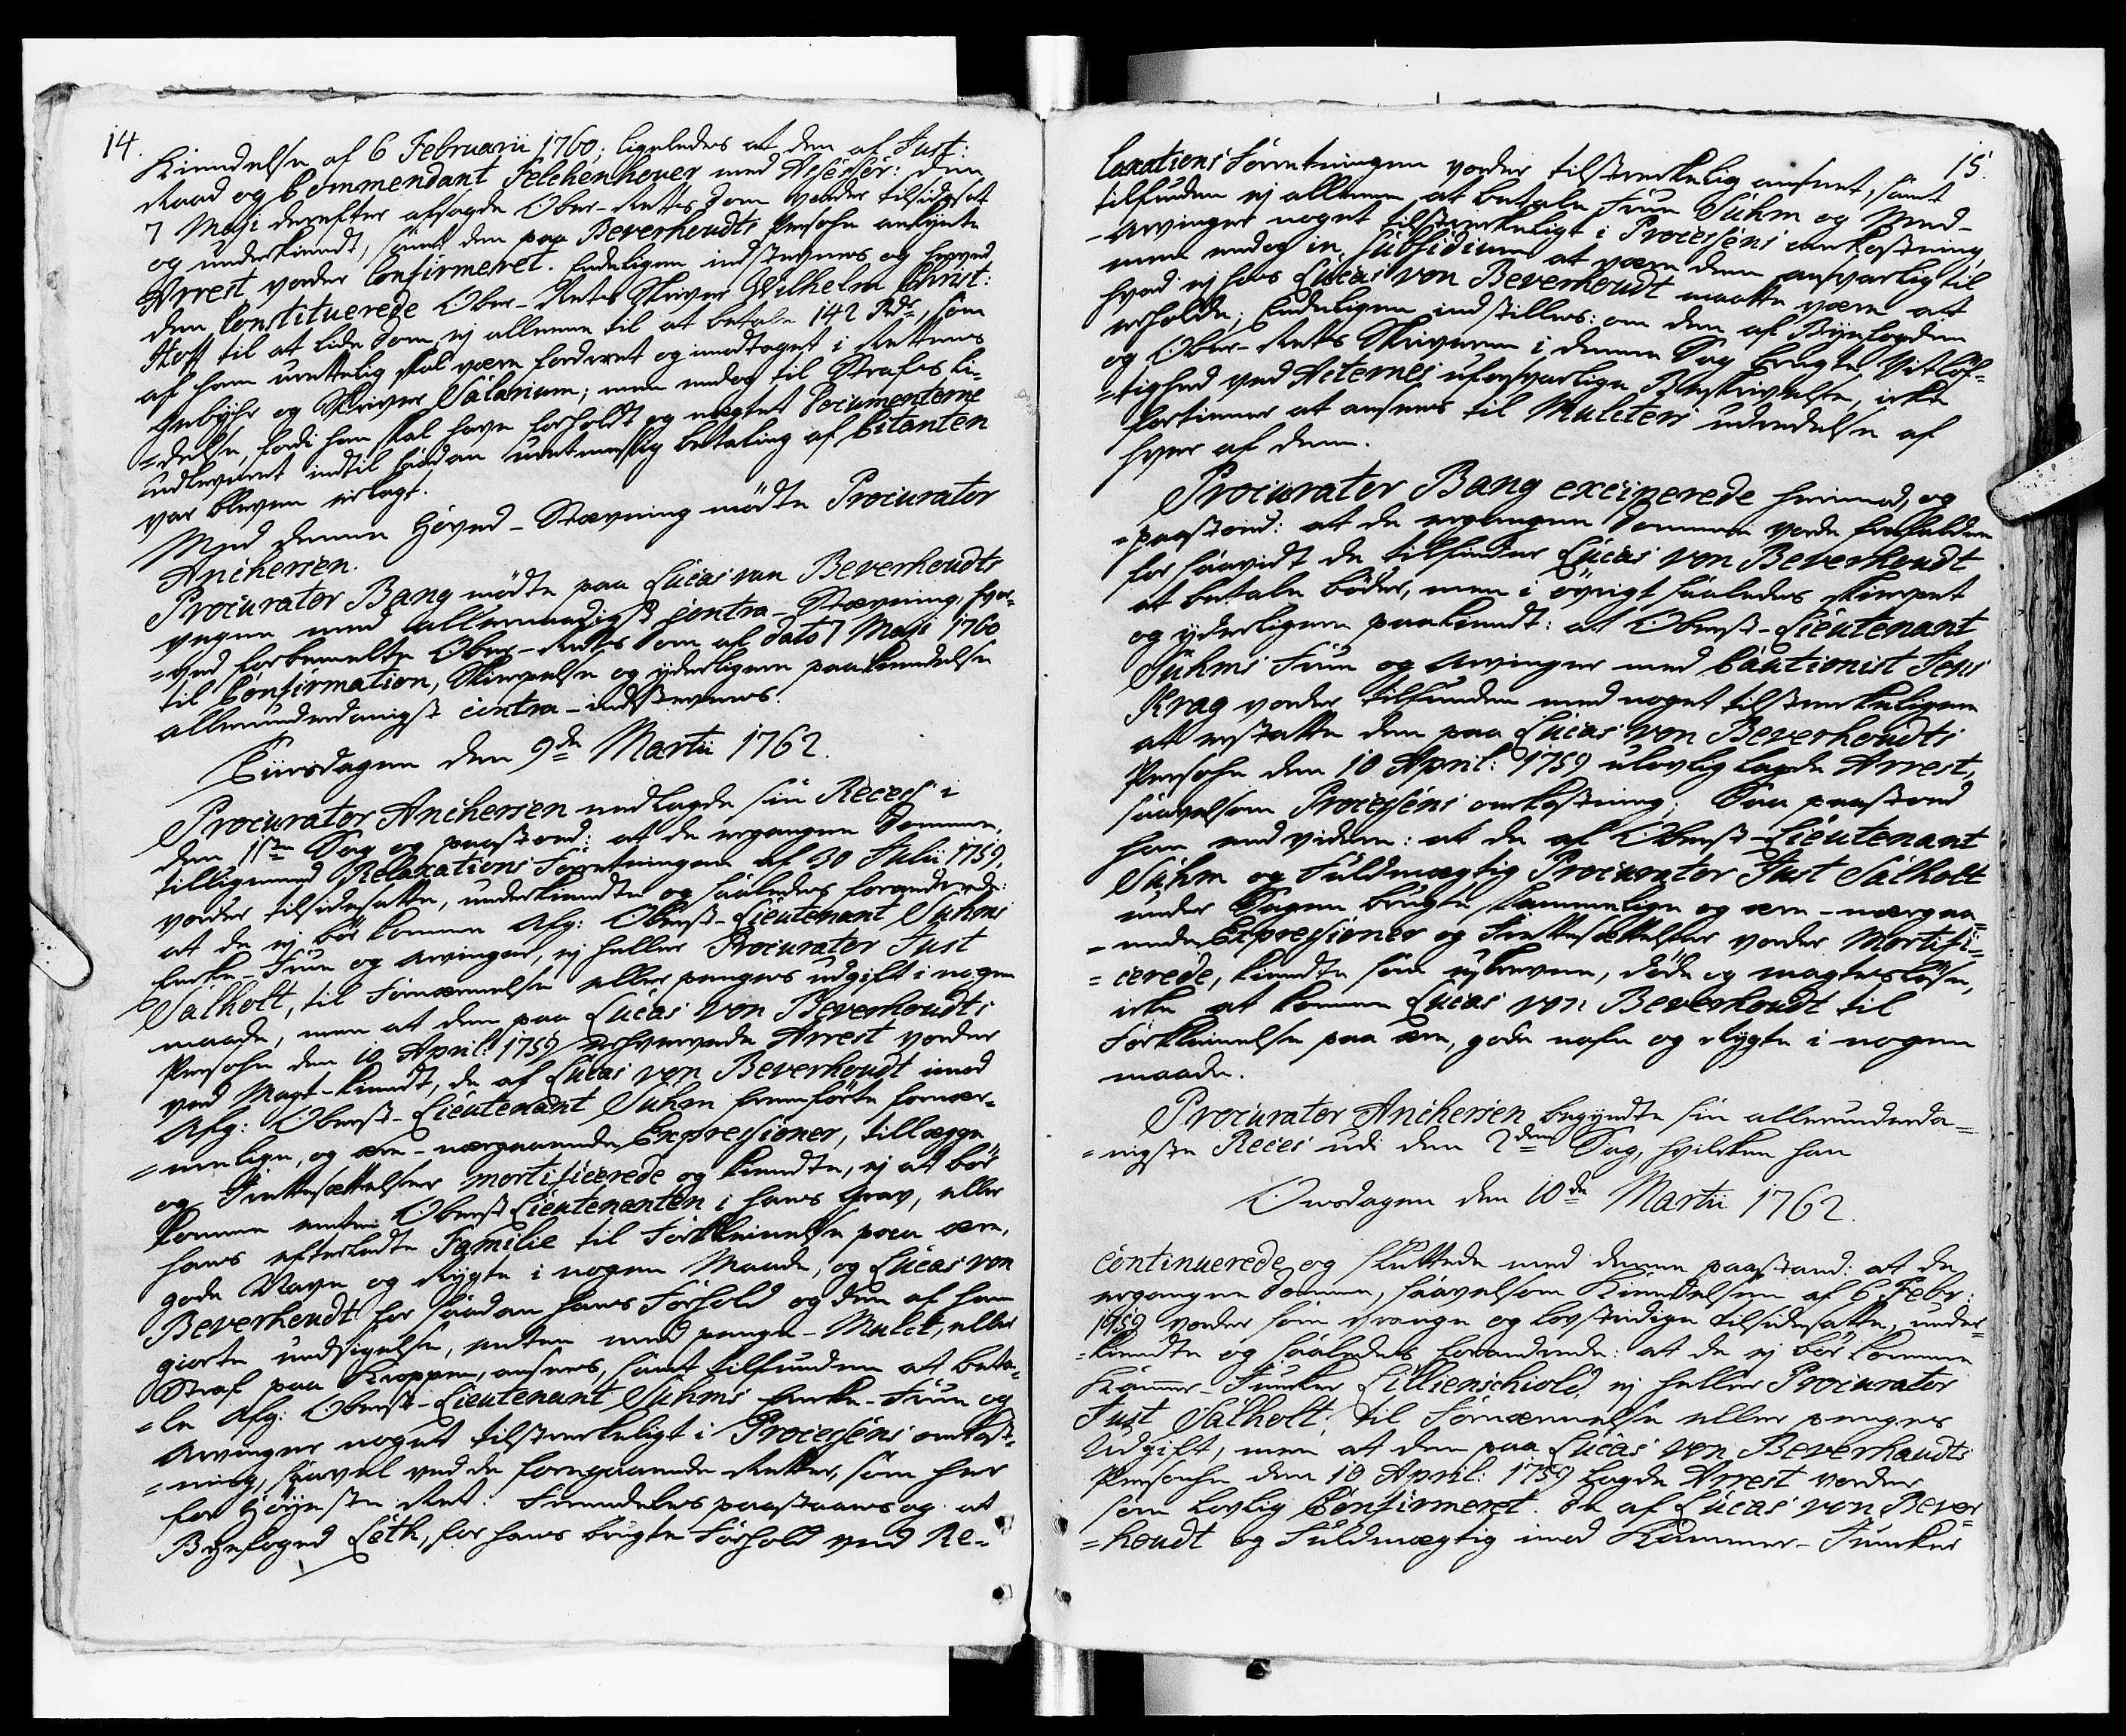 14.
Kiendelse af 6 Februarii 1760; ligeledes at den af Just:
Raad og Commendant Felchenhover med Assessor: den
7 Maji derefter afsagde Ober-Rets Dom vorder tilsidesat
og underkiendt, samt den paa Beverhoudts Persohn ankyndte
Arrest vorder Confirmeret. Endeligen indstevnes og hoved
den Constituerede Ober-Rets Skriver Wilhelm Christ:
Hoff til at lide Dom ej alleene til at betale 142 Rdr, som
af ham urettelig skal være fordret og imodtaget i Rettens
Gebyhr og Skriver Salarium; men endog til Straffes li-
=delse, fordi han skal have forholdt og nægtet Documenterne
udleveret indtil saadan uretmessig betaling af Citanten
var bleven erlagt.
Med denne Hoved-Stævning mødte Procurator
Anchersen.
Procurator Bang mødte paa Lucas van Beverhoudts
vegne med allernaadigst contra-Stævning, hvor-
=ved forbemelte Ober-Rets Dom af dato 7 Maji 1760
til Confirmation, Skierpelse og yderligere paakiendelse
allerunderdanigst contra-indstevnes.
Tiirsdagen den 9de Martii 1762.
Procurator Anchersen nedlagde sin Recess i
den 1ste Sag og paastod: at de ergangne Domme,
tilligemed Relaxations Forretningen af 30 Julii 1759,
vorder tilsidesatte, underkiendte og saaledes forandrede:
at de ej bør komme Afg: Oberst-Lieutenant Suhms
Enke-Frue og Arvinger, ej heller Procurator Just
Salholt, til Fornærmelse eller penges udgift i nogen
maade, men at den paa Lucas von Beverhoudts
Persohn den 10 April: 1759 erhvervede Arrest vorder
ved Magt-kiendt, de af Lucas von Beverhoudt imod
Afg: Oberst-Lieutenant Suhm fremførte fornær-
=melige, og ære-nærgaaende Expressioner, tillægge
og Irettesættelser mortificerede og kiendte, ej at bør
komme enten Oberst Lieutenanten i hans Grav, eller
hans efterladte Familie til Forkleinelse paa ære,
gode Navn og Rygte i nogen Maade, og Lucas von
Beverhoudt for saadan hans Forhold og den af ham
giorte undsigelse, enten med penge-Mulct, eller
Straf paa Kroppen, ansees, samt tilfunden at beta-
=le Afg: Oberst-Lieutenant Suhms Enke-Frue og
Arvinger noget tilstrekkeligt i Processens omkost-
=ning, saavel ved de foregaaende Retter, som her
for Højeste Ret: Fremdeles paastaaes og at
Byefoged Leth, for hans brugte Forhold ved Re-
15.
laxations Forretningen vorder tilstrekkelig anseet, samt
tilfunden ej alleene at betale Frue Suhm og Med-
-Arvinger noget tilstrekkeligt i Processens omkostning,
men endog in subsidium at være dem ansvarlig til
hvad ej hos Lucas von Beverhoudt maatte være at
erholde; Endeligen indstilles: om den af Byefogden
og Ober-Rets Skriveren i denne Sag brugte Vitløf-
=tighed ved Acternes uforsvarlige Beskrivelse, icke
fortiener at ansees til Mulcters udredelse af
hver af dem.
Procurator Bang exciperede herimod, og
=paastoed: at de ergangne Domme vorde frafaldne
for saavidt de tilfinder Lucas von Beverhoudt
at betale bøder, men i øvrigt saaledes skierpet
og yderligere paakiendt: at Oberst-Lieutenant
Suhms Frue og Arvinger med Cautionist Jens
Krag vorder tilfunden med noget tilstrekkeligere
at erstatte den paa Lucas von Beverhoudts
Persohn den 10 April: 1759 ulovlig lagde Arrest,
saavelsom Processens omkostning; Saa paastoed
han endvidere: at de af Oberst-Lieutenant
Suhm og Fuldmægtig Procurator Just Salholt
under Sagen brugte skammelige og ære-nærgaa-
=ende Expressioner og Irettesættelser vorder Mortifi-
=cerede, kiendte som uskrevne, døde og magtesløse,
icke at komme Lucas von Beverhoudt til
Forkleinelse paa ære, gode nafn og Rygte i nogen
maade.
Procurator Anchersen begyndte sin allerunderda-
=nigste Reces udi den 2den Sag, hvilken han
Onsdagen den 10de Martii 1762.
continuerede og sluttede med denne paastand: at de
ergangne Domme, saavelsom Kiendelsen af 6 Febr:
1759 vorder som vrange og lovstridige tilsidesatte, under-
=kiendte og saaledes forandrede: at de ej bør komme
Kammer-Juncker Lillienschiold ej heller Procurator
Just Salholt, til Fornærmelse eller penges
Udgift, men at den paa Lucas von Beverhaudts
Persohn den 10 April: 1759 lagde Arrest vorder
som lovlig Confirmeret. De af Lucas von Bever-
=houdt og Fuldmægtig imod Kammer-Juncker